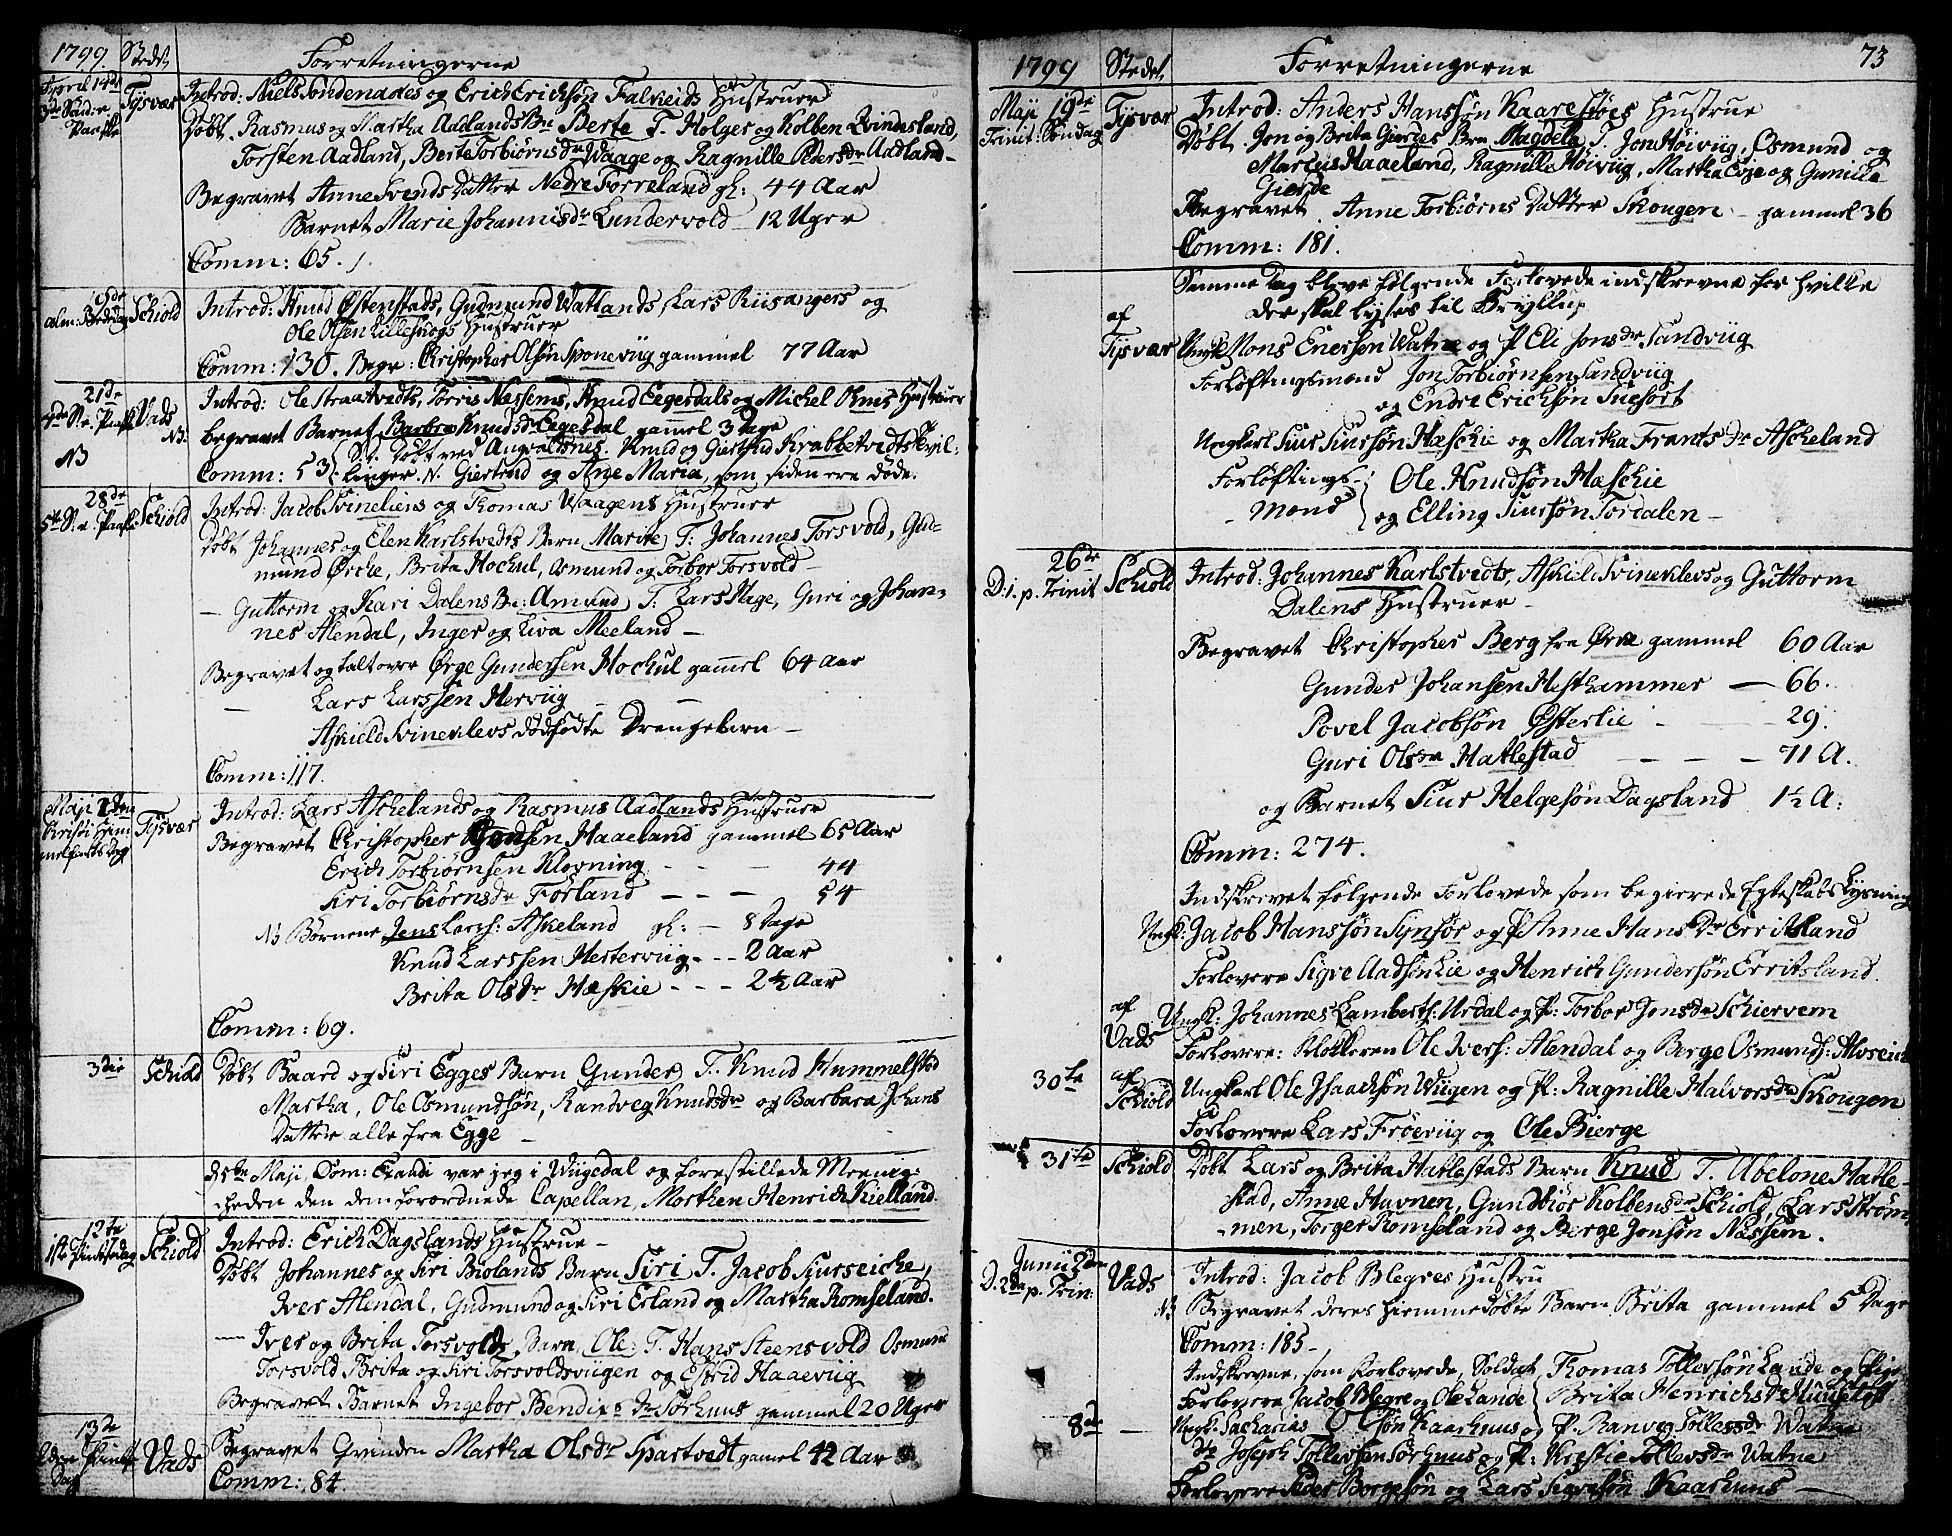 1799. Stedet Forretningerne
April 14de
3de Sønd: e: Paaske
Tysvær
Introd: Niels Søndenaaes og Erich Erichsøn Falkeids Hustruer
Døbt Rasmus og Martha Aadlands Bn Berte T. Holger og Kolben Qvindesland,
Torsten Aadland, Berte Torbiørns Dr Waage og Ragnille Peders Dr Aadland
Begravet Anne Svends Datter Nedre Førreland gl: 44 Aar
Barnet Marie Johannis Dr Lundervold 12 Uger
Comm: 65.
alm: Bededag Schiold
Introd: Knud Østenstads, Gudmund Watlands, Lars Riisangers og
Ole Olsen Lilleskogs Hustruer
Comm: 130. Begr: Christopher Olsøn Sponeviig gammel 77 Aar
21de
4de S. e. Paask Vads
NB
Introd: Ole Straatvedts, Torris Næssems, Knud Eegesdals og Michel Ølnes Hustruer
begravet Barnet Barbra Knuds Dr Eegesdal gammel 3 Dage
Comm: 53 Giertrud og Ane Maria, som siden ere døde.
28de
5te S. e. Paask Schiold
Introd: Jacob Svineliens og Thomas Waagens Hustruer
Døbt Johannes og Elen Karlstvedts Barn Marite T: Johannes Torsvold, Gud-
mund Ørche, Brita Hochul, Osmund og Torbor Torsvold
— Guttorm og Kari Dalens Bn: Amund T: Lars Hage, Guri og Johan-
nes Alendal, Inger og Liva Meeland —
Begravet og talt over Ørge Gundersen Hochul gammel 64 Aar
— Lars Larssen Herviig —
Askield Svineklevs dødfødte Drengebarn —
Comm: 117.
Maji 2den
Christi Him-
melfarts Dag
Tysvær
Introd: Lars Aschelands og Rasmus Aadlands Hustruer
Begravet Christopher Haaeland gammel 65 Aar
Erich Torbiørnsen Klovning - - - 44
Siri Torbiørns Dr Førland - - - 54
NB Børnene Jens Larss: Askeland gl: — 8 Dage
Knud Larssen Hesterviig - - - 2 Aar
Brita Ols Dr Hæskie - - - 2½ Aar
Comm: 69.
3die Schiold
Døbt Baard og Siri Egges Barn Gunder T. Knud Hummelstød
Martha, Ole Osmundsøn, Randveg Knuds Dr og Barbara Johans
Datter alle fra Egge —
Maji, Dom: Exaudi var jeg i Wiigedal og forestillede Meenig-
heden den dem forordnede Capellan, Morthen Henrich Kielland.
12te
1ste Pintsedag Schiold
Introd: Erich Dagslands Hustrue —
Døbt Johannes og Siri Biolands Barn Siri T. Jacob Siurseiche,
Iver Alendal, Gudmund og Siri Erland og Martha Romseland.
— Iver og Brita Torsvolds Barn Ole T. Hans Steensvold Osmund
Torsvold Brita og Siri Torsvoldsviigen og Estrid Haaeviig
Begravet Barnet Ingebor Bendix Dr Sørhuus gammel 20 Uger
13te
2den Pintse
Dag
Vads
Begravet Qvinden Martha Ols Dr Spartvedt gamel 42 Aar
Comm: 84.
1799 Stedet Forretningerne 73
Maji 19de
Trinit: Søndag
Tysvær
Introd: Anders Hanssøn Kaarestøes Hustrue
Døbt Jon og Brita Gierdes Brn Magdela T. Jon Høiviig, Osmund og
Marcus Haaeland, Ragnilla Høiviig, Martha Eige og Gunilla
Gierde
Begravet Anne Torbiørns Datter Skougen — gammel 36
Comm: 181.
Samme Dag bleve følgende Forlovede indskrevne for hville
der skal lyses til Bryllup
af
Tysvær
Ungk Mons Enersen Watne og P. Eli Jons Dr Sandviig
Forløftingsmænd Jon Torbiørnsen Sandviig
og Endre Erichsøn Tuefort
Ungkarl Siur Siursøn Hæschie og Martha Frants Dr Ascheland
Forløftings- Ole Knudsøn Hæschie
Mænd og Elling Siursøn Tordalen —
26de
D: 1. p. Trinit Schiold
Introd: Johannes Karlstvedts, Askield Svineklevs og Guttorm
Dalens Hustruer —
Begravet Christopher Berg fra Ørke gammel 60 Aar
Gunder Johansen Hesthammer — 66.
Povel Jacobsøn Østerlie - 29.
Guri Ols Dr Hatlestad - - - 71 A.
og Barnet Siur Helgesøn Dagsland 1½ A:
Comm: 274.
Indskrevet følgende Forlovede som begierede Egteskabs Lysning
Ungk: Jacob Hanssøn Synsør og P Anne Hans Dr Erritsland
Forlovere Sigve Aadsøn Lie og Henrich Gundersøn Erritsland.
af
Vads
Ungk: Johannes Lamberths: Urdal og P: Torbor Jons Dr Schiervem
Forlovere: Klokkeren Ole Ivers: Alendal og Berge Osmunds: Alvseich
30te af
Schiold
Ungkarl Ole Isaachsøn Wiigen og P. Ragnille Halvors Dr Skougen
Forlovere Lars Frøeviig og Ole Bierge
31te Schiold
Døbt Lars og Brita Hatlestads Barn Knud T. Ubelone Hatle-
stad, Anne Havnen, Gundbiør Kolbens Dr Schiold, Lars Strøm-
men, Torger Romseland og Berge Jonsøn Næssem.
Junii 2den
D. 2de p. Trin: Vads
Introd: Jacob Blegres Hustru
NB Begravet deres hiemmedøbte Barn Brita gammel 5 Dage
Comm: 185 —
Indskrevne, som Forlovede, Soldat Thomas Tollevsøn Lande og Pige
Forlovere Jacob Blegre og Ole Lande Brita Henrichs Dr
8de —
Ungk: Zacharias Kaarhuus og P. Ranveg Tollevs Dr Watne
Do Joseph Tollevsen Sørhuus og P: Kristie Tollevs Dr Watne
Forlovere Peder Borgesøn og Lars Sigvesøn Kaarhuus —